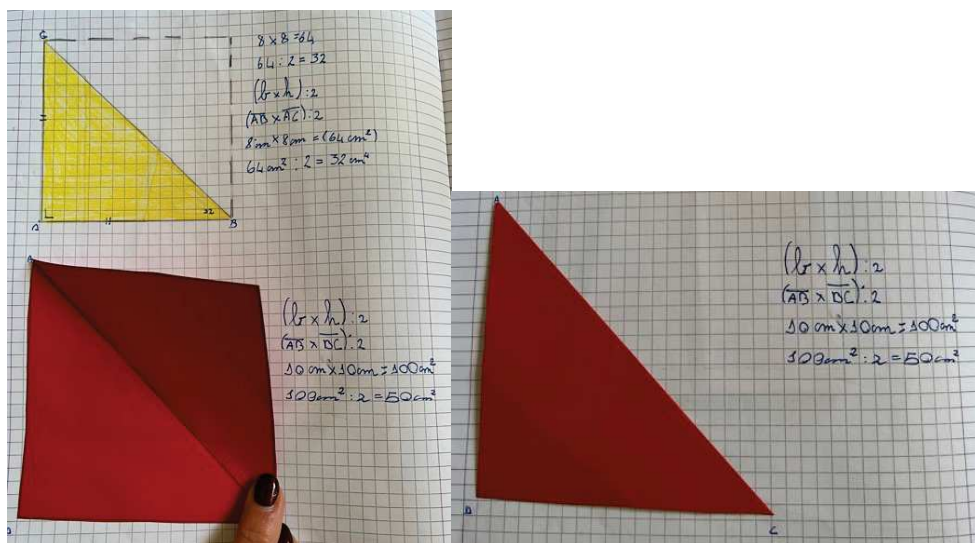 C
8 x 8 = 64
64 : 2 = 32
(b x h) : 2
(AB x AC) : 2
8cm x 8cm = (64 cm²)
64 cm² : 2 = 32 cm²
32
B
(b x h) : 2
(AB x DC) : 2
10 cm x 10 cm = 100 cm²
100 cm² : 2 = 50 cm²
A
(b x h) : 2
(AB x DC) : 2
10 cm x 10 cm = 100 cm²
100 cm² : 2 = 50 cm²
C